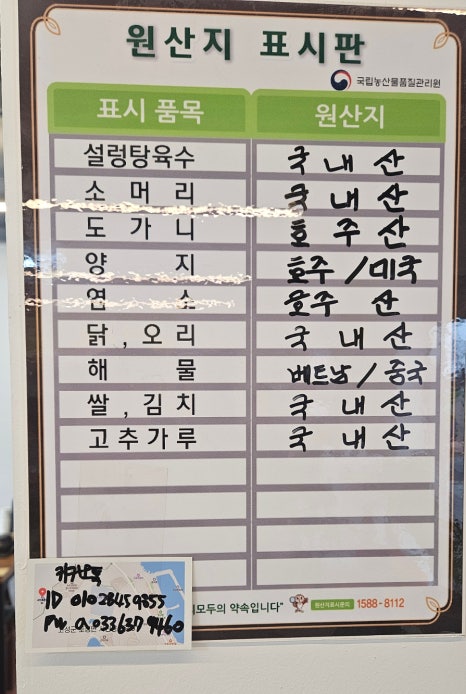 원산지 표시판
국립농산물품질관리원
표시 품목 원산지
설렁탕육수 국내산
소머리 국내산
도가니 호주산
양지 호주/미국
연소 호주산
닭,오리 국내산
해물 베트남/중국
쌀,김치 국내산
고추가루 국내산
모두의 약속입니다"
원산지표시문의 1588-8112
카카오톡
ID 01028459355
PW a0336379460